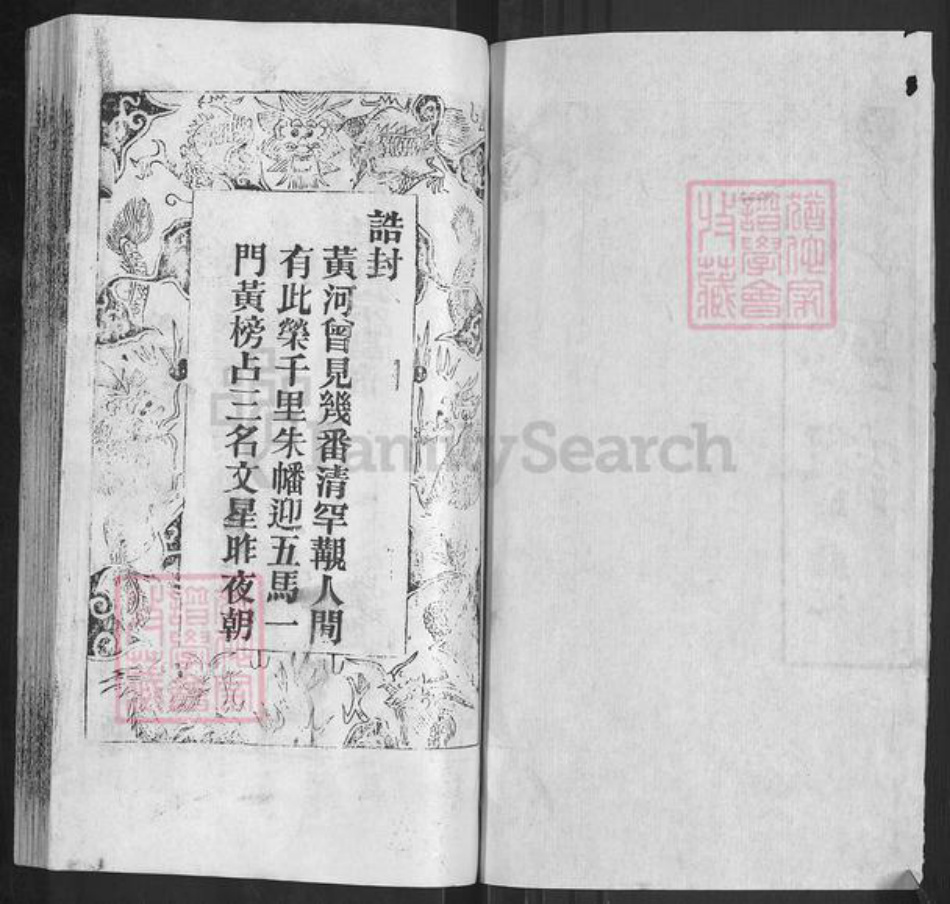 誥封
黃河曾見幾番清罕覯人間
有此榮千里朱幡迎五馬一
門黃榜占三名文星昨夜朝
FamilySearch
譜學會
收藏